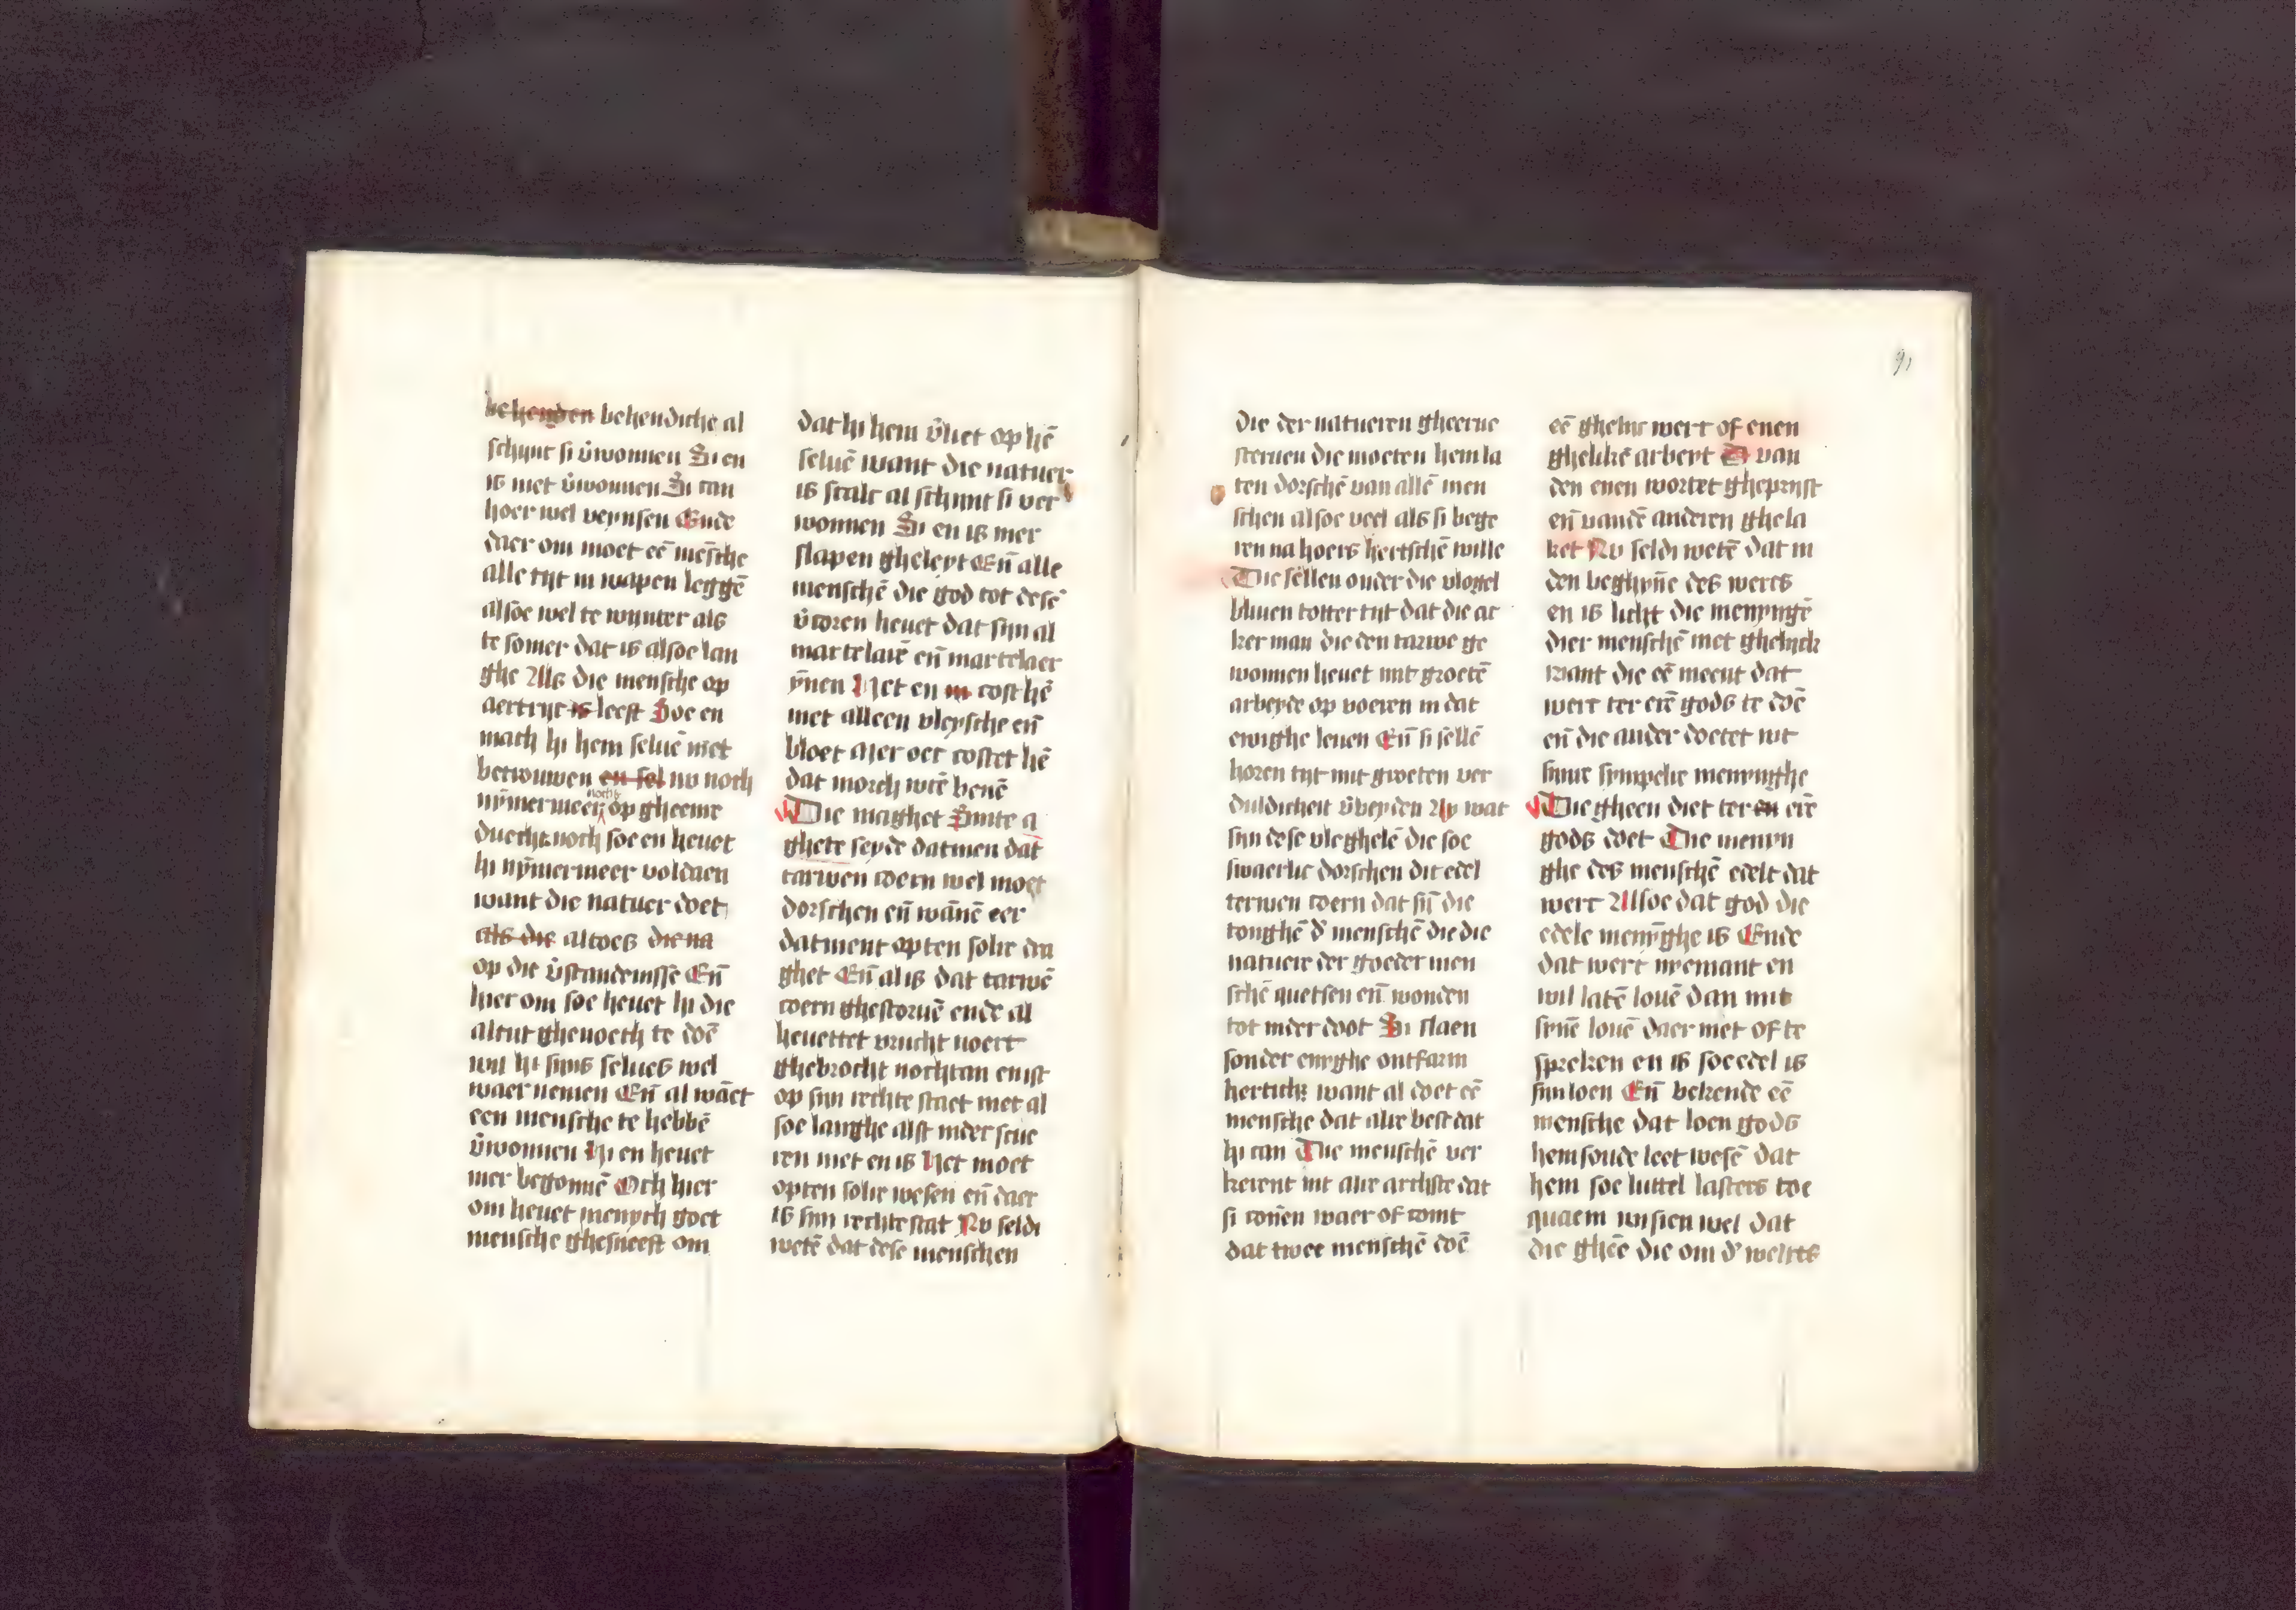 behenden behendiche al
schijnt si v̄wonnen Si en
is niet v̄wonnen Si can
hoer wel veynsen Ende
daer om moet eē mēsche
alle tijt in wapen leggē
alsoe wel te wijnter als
te somer dat is alsoe lan
ghe Als die mensche op
aertrijc is leeft Soe en
mach hi hem seluē niet
betrouwen en sel nv noch
nȳmermeer noch op gheenre
duecht noch soe en heuet
hi nȳmermeer voldaen
want die natuer doet
als die altoes die na
op die v̄standenisse Eñ
hier om soe heuet hi die
altijt ghenoech te doē
wil hi sijns selues wel
waer nemen Eñ al wāet
een mensche te hebbē
v̄wonnen Hi en heuet
mer begonnē Och hier
om heuet menych goet
mensche ghesneeft om
dat hi hem v̄liet op hē
seluē want die natuer
is stalc al schijnt si ver
wonnen Si en is mer
slapen gheleyt Eñ alle
menschē die god tot dese
v̄coren heuet dat sijn al
martelarē eñ martelaer
ȳnen Het en in cost hē
niet alleen vleysche eñ
bloet mer oec costet hē
dat morch wtē benē
Die maghet Sinte a
ghete seyde datmen dat
tarwen coern wel moet
dorschen eñ wānē eer
datment opten solre dra
ghet Eñ al is dat tarwē
coern ghestoruē ende al
heuettet vrucht voert
ghebrocht nochtan enist
op sijn rechte staet niet al
soe langhe alst inder scue
ren niet en is Het moet
opten solre wesen eñ daer
is sijn rechte stat Nv seldi
wetē dat dese menschen
die der natueren gheerne
steruen die moeten hem la
ten dorschē van allē men
schen alsoe veel als si bege
ren na hoers hertschē wille
Die sellen onder die vlogel
bliuen totter tijt dat die ac
ker man die den tarwe ge
wonnen heuet mit groetē
arbeyde op voeren in dat
ewighe leuen Eñ si sellē
horen tijt mit groeten ver
duldicheit v̄beyden Ay wat
sijn dese vleghelē die soe
swaerlic dorschen dit edel
terwen coern dat sijn̄ die
tonghē d' menschē die die
natuere der goeder men
schē quetsen eñ wonden
tot inder doot Si slaen
sonder enyghe ontfarm
hertich want al doet eē
mensche dat alre best dat
hi can Die menschē ver
kerent int alre archste dat
si connen waer of comt
dat twee menschē doē
eē ghelijc werc of enen
ghelikē arbeyt D van
den enen wortet gheprijst
eñ vandē anderen ghela
ket Nv seldi wetē dat in
den beghȳne des wercs
en is licht die menyngē
dier menschē niet ghelijck
want die eē meent dat
werc ter erē gods te doē
eñ die ander doetet wt
sijnre sympelre menynghe
Die gheen diet ter en ere
gods doet Die menyn
ghe des menschē edelt dat
werc Alsoe dat god die
edele menȳghe is Ende
dat werc nyemant en
wil latē louē dan mit
synē louē daer niet of te
spreken en is soe edel is
sijn loen Eñ bekende eē
mensche dat loen gods
hem soude leet wesē dat
hem soe luttel lasters toe
quaem wi sien wel dat
die ghee die om d' werlts
91